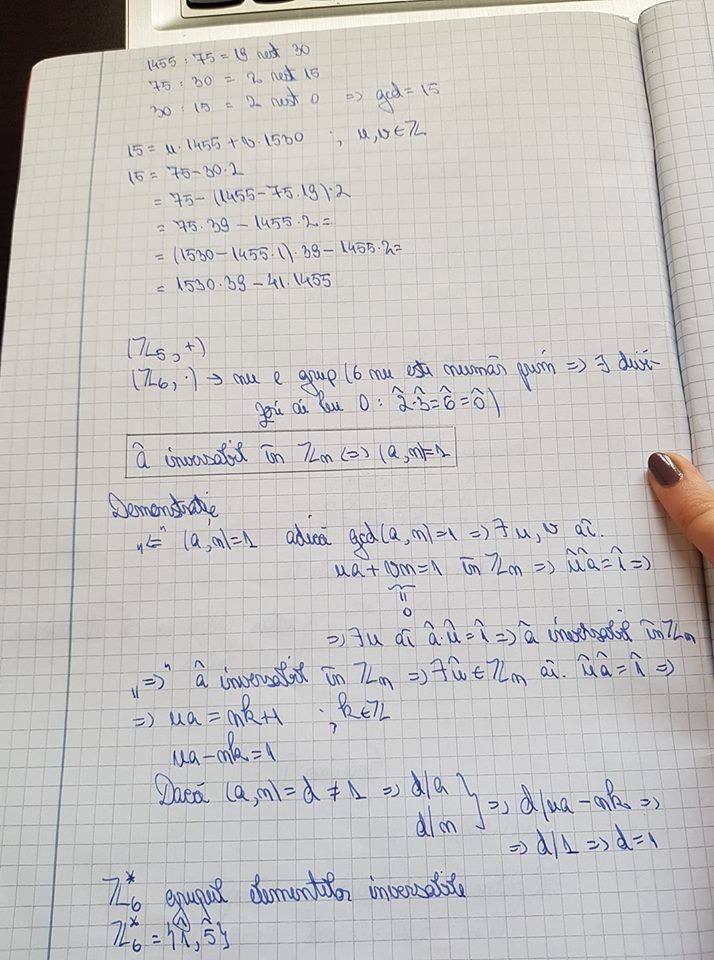 1455 : 75 = 19 rest 30
75 : 30 = 2 rest 15
30 : 15 = 2 rest 0 => gcd = 15
15 = u·1455 + v·1530 ; u, v ∈ ℤ
15 = 75 - 30·2
= 75 - (1455 - 75·19)·2
= 75·39 - 1455·2 =
= (1530 - 1455·1)·39 - 1455·2 =
= 1530·39 - 41·1455
(ℤ₅, +)
(ℤ₆, ·) → nu e grup (6 nu este număr prim => ∃ divi-
zori ai lui 0 : 2̂·3̂ = 6̂ = 0̂)
â inversabil în ℤn <=> (a, n) = 1
Demonstrație
„<=" (a, n) = 1 adică gcd(a, n) = 1 => ∃ u, v aî.
ua + vn = 1 în ℤn => ûâ = 1̂ =>
=
0
=> ∃ u aî â·û = 1̂ => â inversabil în ℤn
„=>" â inversabil în ℤn => ∃ û ∈ ℤn aî. ûâ = 1̂ =>
=> ua = nk + 1 ; k ∈ ℤ
ua - nk = 1
Dacă (a, n) = d ≠ 1 => d/a } => d/ua - nk =>
d/n => d/1 => d = 1
ℤ₆* grupul elementelor inversabile
ℤ₆* = {1̂, 5̂}